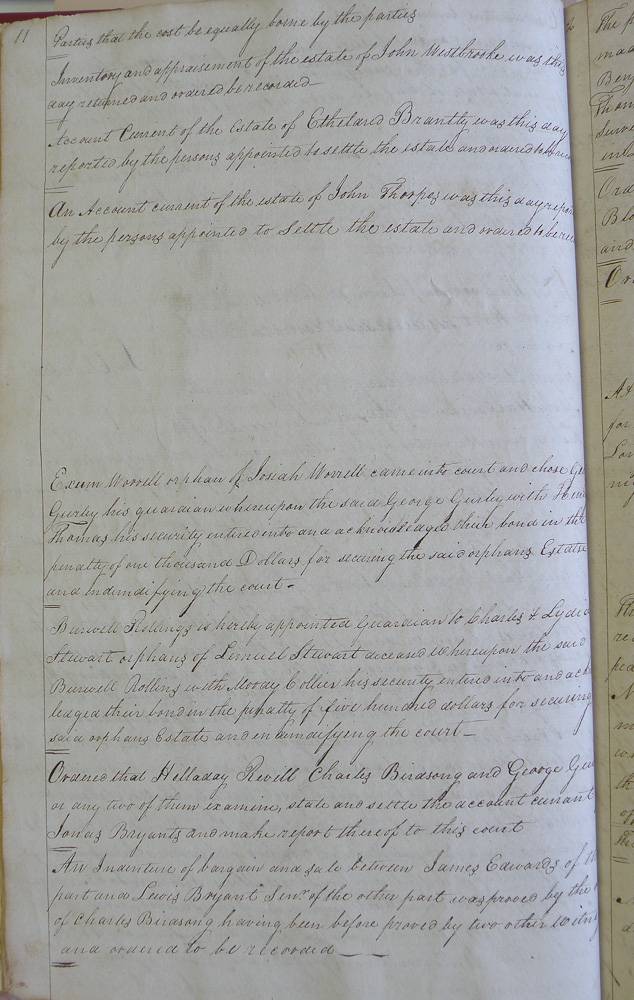 11
Parties that the cost be equally borne by the parties
Inventory and appraisement of the estate of John Westbrooke was this
day returned and ordered be recorded
Account Current of the Estate of Etheldred Brantly was this day
reported by the persons appointed to settle the estate and ordered to be
An Account current of the estate of John Thorpes was this day
by the persons appointed to Settle the estate and ordered to be
Exum Worrell orphan of Josiah Worrell came into court and chose
Gurley his guardian whereupon the said George Gurley with
Thomas his security entered into and acknowledged their bond in the
penalty of one thousand Dollars for securing the said orphans Estate
and indemdifying the court
Burwell Rollings is hereby appointed Guardian to Charles & Lydia
Stewart orphans of Lemuel Stewart deceased Whereupon the said
Burwell Rollins with Moody Collier his security entered into and
ledged their bond in the penalty of five hundred dollars for securing
said orphans Estate and indemdifying the court
Ordered that Helladay Revill Charles Birdsong and George
or any two of them examine, state and settle the account currant
Jonas Bryants and make report thereof to this court
An Indenture of bargain and sale between James Edwards of
part and Lewis Bryant Senr of the other part was proved by the
of Charles Birdsong having been before proved by two other
and ordered to be recorded